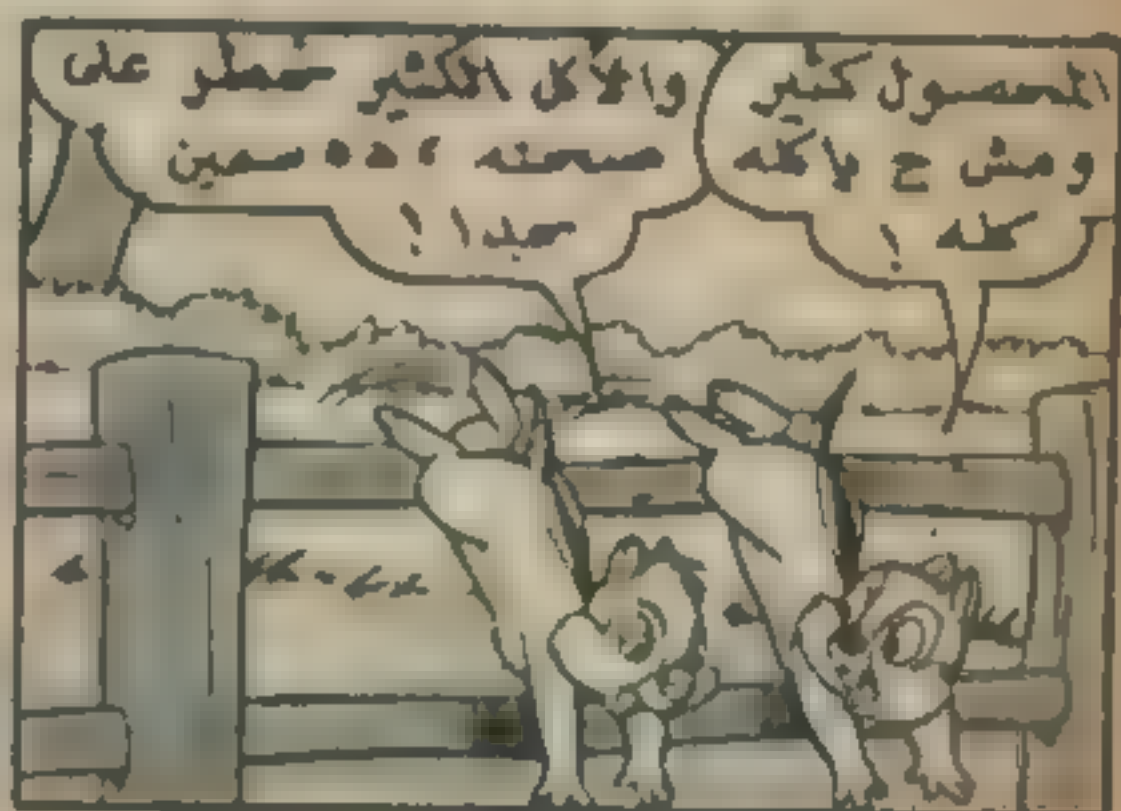 المحصول كثير
ومش ح ياكله
كله !
والاكل الكثير خطر على
صحته ده سمين
جدا !